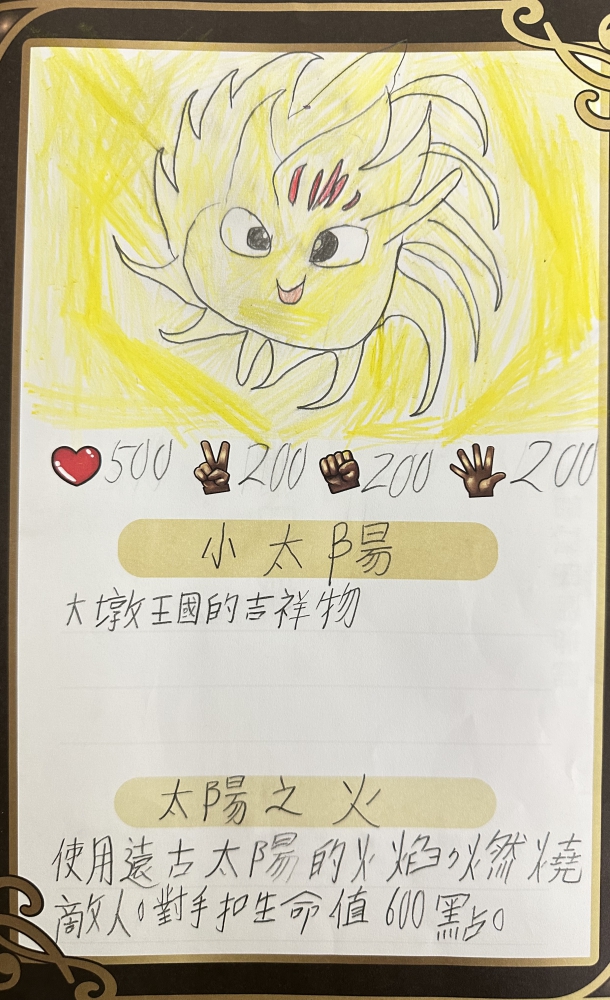 500 200 200 200
小太陽
大墩王國的吉祥物
太陽之火
使用遠古太陽的火焰，燃燒
敵人。對手扣生命值600點。